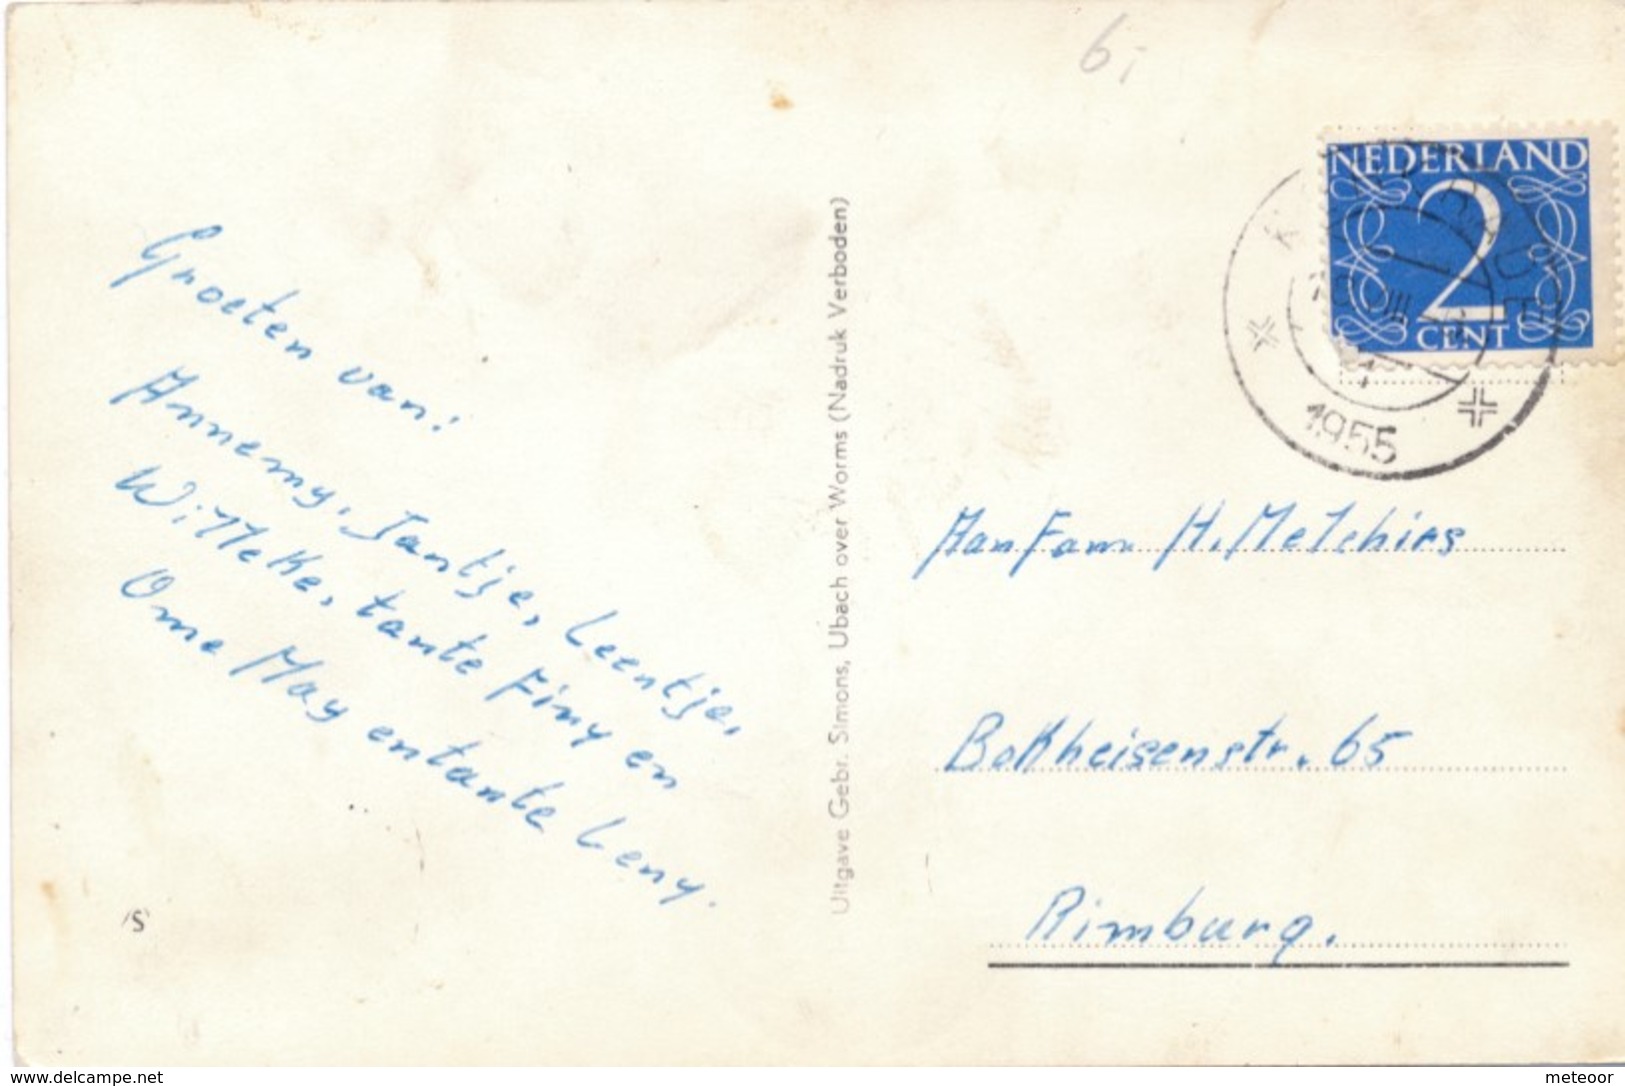 6,-
NEDERLAND
2
CENT
KERKRADE
1955
Groeten van:
Annemy, Jantje, Leentje,
Willeke, tante Finy en
Ome May en tante Leny.
Uitgave Gebr. Simons, Ubach over Worms (Nadruk Verboden)
Aan Fam. H. Melchirs
Bokheisenstr. 65
Rimburg.
www.delcampe.net
meteoor